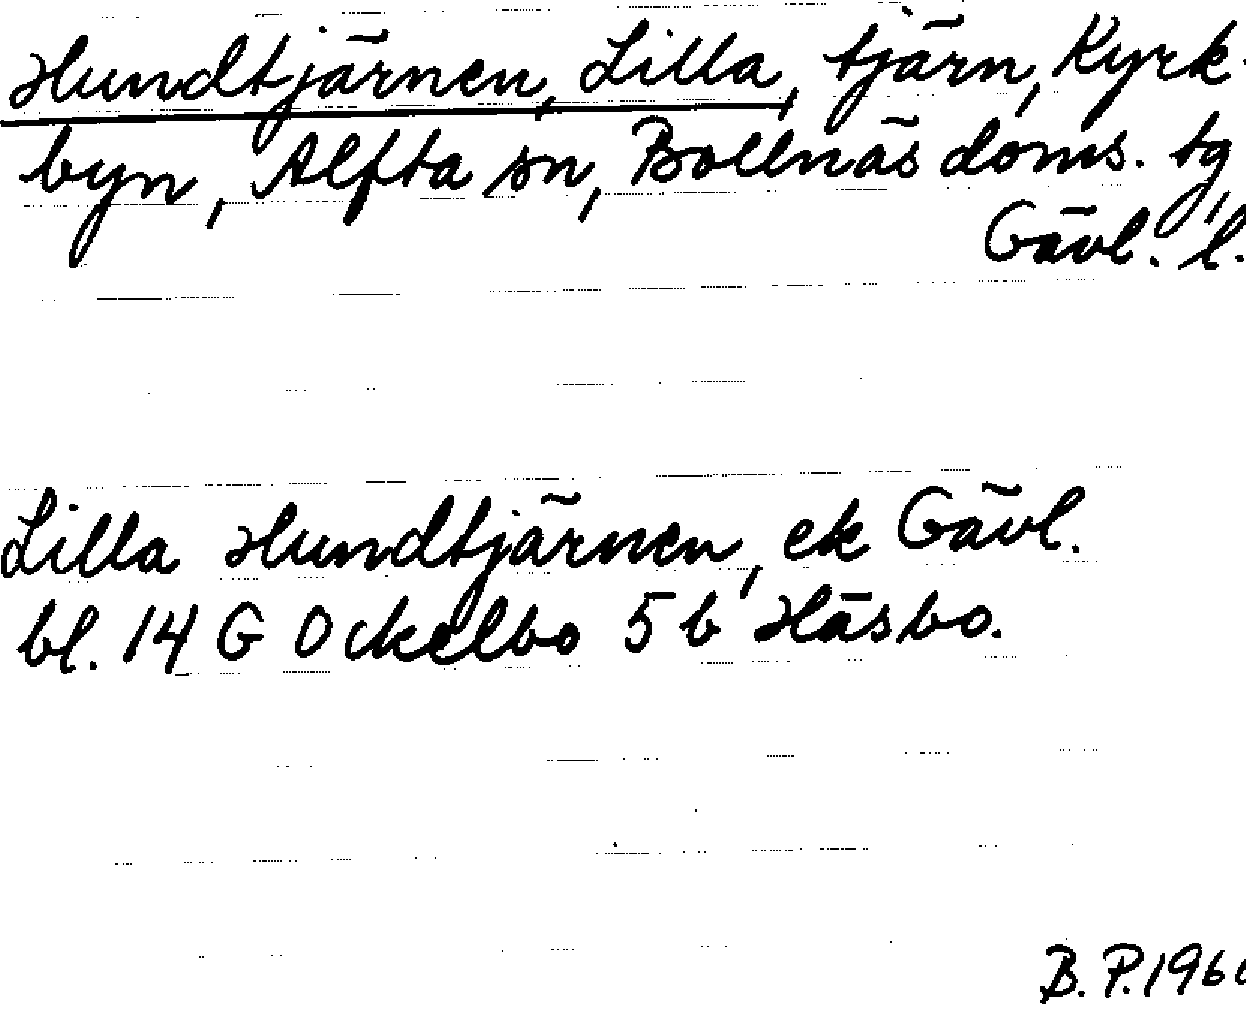 Hundtjärnen, Lilla, tjärn, Kyrk-
byn, Alfta sn, Bollnäs doms. tg,
Gävl. l.
Lilla Hundtjärnen, ek Gävl.
bl. 14 G Ockelbo 5 b Häsbo.
B. P.